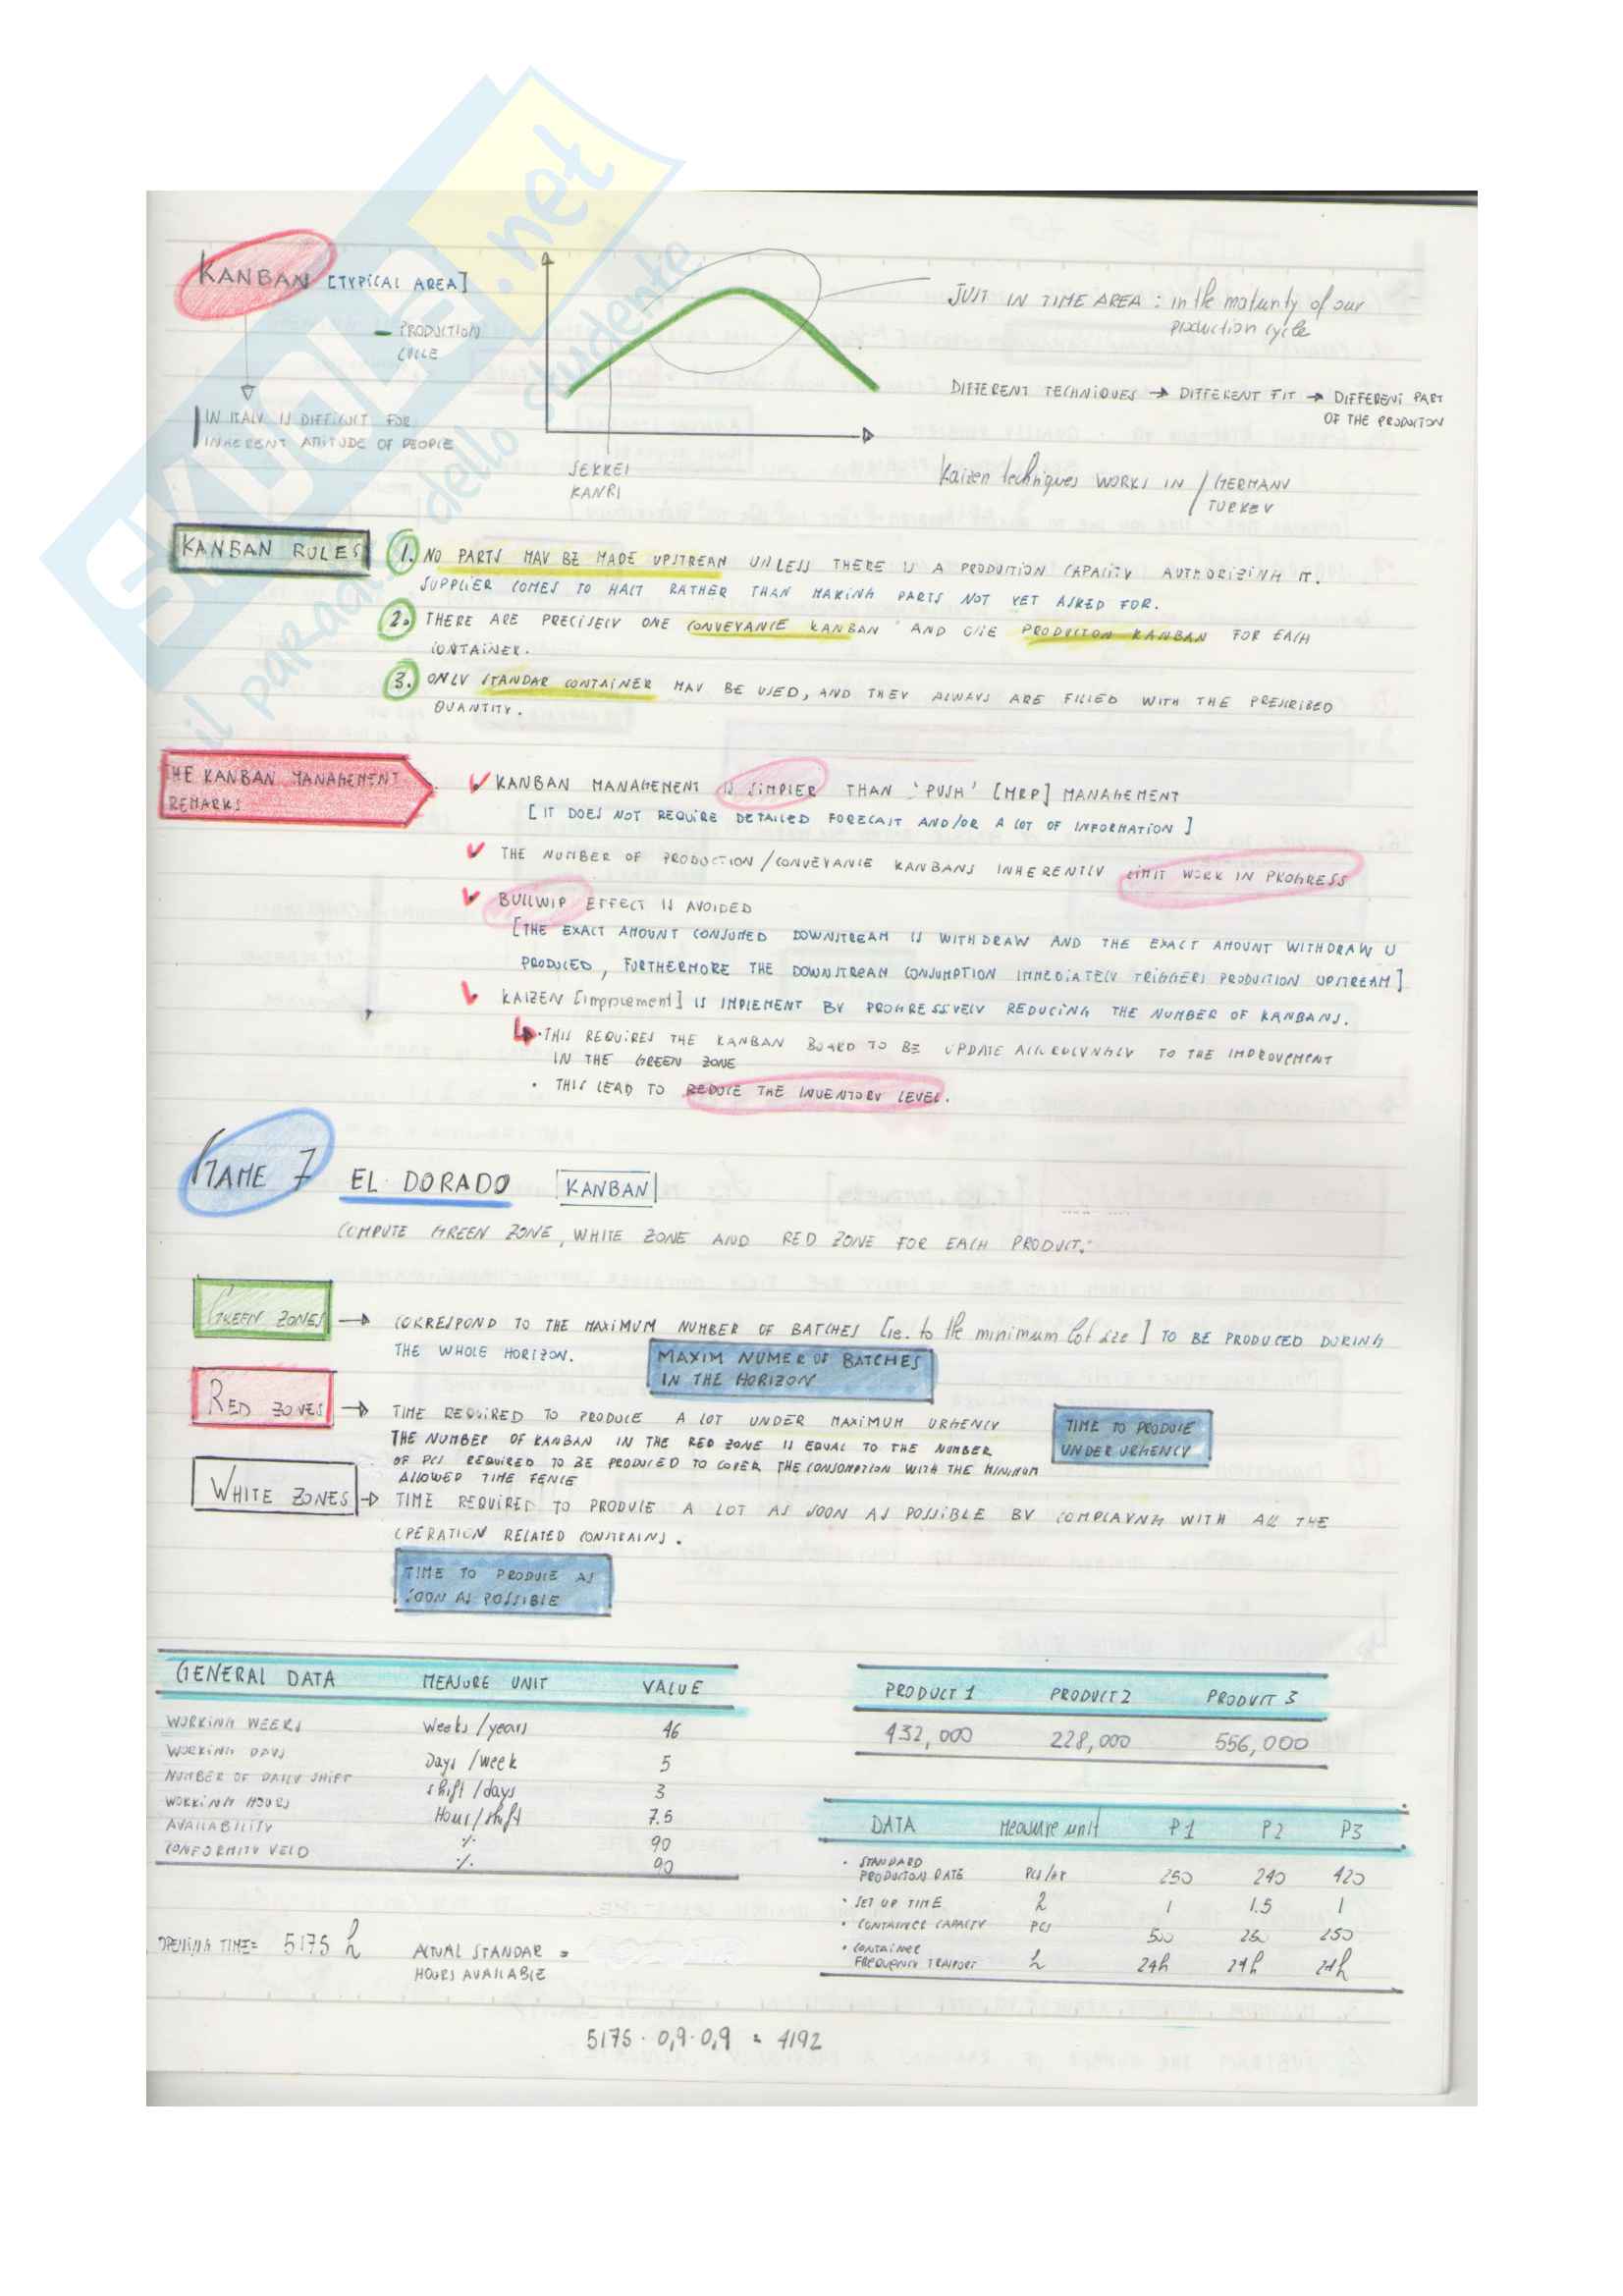 SKUOLA.net
il paradiso dello studente
KANBAN [TYPICAL AREA]
PRODUCTION
CYCLE
JUST IN TIME AREA : in the maturity of our
production cycle
IN ITALY IS DIFFICULT FOR
INHERENT ATITUDE OF PEOPLE
DIFFERENT TECHNIQUES → DIFFERENT FIT → DIFFERENT PART
OF THE PRODUTION
SEKKEI
KANRI
Kaizen techniques WORKS IN / GERMANY
TURKEY
KANBAN RULES
1. NO PARTS MAY BE MADE UPSTREAM UNLESS THERE IS A PRODUTION CAPACITY AUTHORIZING IT.
SUPPLIER COMES TO HALT RATHER THAN MAKING PARTS NOT YET ASKED FOR.
2. THERE ARE PRECISELY ONE CONVEYANCE KANBAN AND ONE PRODUCTON KANBAN FOR EACH
CONTAINER.
3. ONLY STANDAR CONTAINER MAY BE USED, AND THEY ALWAYS ARE FILLED WITH THE PRESCRIBED
QUANTITY.
THE KANBAN MANAGEMENT
REMARKS
KANBAN MANAGEMENT IS SIMPLER THAN 'PUSH' [MRP] MANAGEMENT
[IT DOES NOT REQUIRE DETAILED FORECAST AND/OR A LOT OF INFORMATION]
THE NUMBER OF PRODUCTION/CONVEYANCE KANBANS INHERENTLY LIMIT WORK IN PROGRESS
BULLWIP EFFECT IS AVOIDED
[THE EXACT AMOUNT CONSUMED DOWNSTREAM IS WITHDRAW AND THE EXACT AMOUNT WITHDRAW IS
PRODUCED, FURTHERMORE THE DOWNSTREAM CONSUMPTION IMMEDIATELY TRIGGERS PRODUCTION UPSTREAM]
KAIZEN [improvement] IS IMPLEMENT BY PROGRESSIVELY REDUCING THE NUMBER OF KANBANS.
• THIS REQUIRES THE KANBAN BOARD TO BE UPDATE TO THE IMPROVEMENT
IN THE GREEN ZONE
• THIS LEAD TO REDUCE THE INVENTORY LEVEL.
GAME 7 EL DORADO KANBAN
COMPUTE GREEN ZONE, WHITE ZONE AND RED ZONE FOR EACH PRODUCT.
GREEN ZONES → CORRESPOND TO THE MAXIMUM NUMBER OF BATCHES [i.e. to the minimum lot size] TO BE PRODUCED DURING
THE WHOLE HORIZON.
MAXIM NUMER OF BATCHES
IN THE HORIZON
RED ZONES → TIME REQUIRED TO PRODUCE A LOT UNDER MAXIMUM URGENCY
THE NUMBER OF KANBAN IN THE RED ZONE IS EQUAL TO THE NUMBER
OF PCS REQUIRED TO BE PRODUCED TO COVER THE CONSOMPTION WITH THE MINIMUM
ALLOWED TIME FENCE
TIME TO PRODUCE
UNDER URGENCY
WHITE ZONES → TIME REQUIRED TO PRODUCE A LOT AS SOON AS POSSIBLE BY COMPLAYNG WITH ALL THE
OPERATION RELATED CONSTRAINS.
TIME TO PRODUCE AS
SOON AS POSSIBLE
GENERAL DATA MEASURE UNIT VALUE
WORKING WEEKS Weeks/years 46
WORKING DAYS Days/week 5
NUMBER OF DAILY SHIFT shift/days 3
WORKING HOURS Hours/shift 7.5
AVAILABILITY % 90
CONFORMITY YELD % 90
PRODUCT 1 PRODUCT 2 PRODUCT 3
432,000 228,000 556,000
DATA Measure unit P1 P2 P3
• STANDARD
PRODUCTON RATE PCS/hr 250 240 420
• SET UP TIME h 1 1.5 1
• CONTAINER CAPACITY PCS 500 250 250
• CONTAINER
FREQUENCY TRASPORT h 24h 24h 24h
OPENING TIME = 5175 h
ACTUAL STANDAR =
HOURS AVAILABLE
5175 · 0,9 · 0,9 = 4192